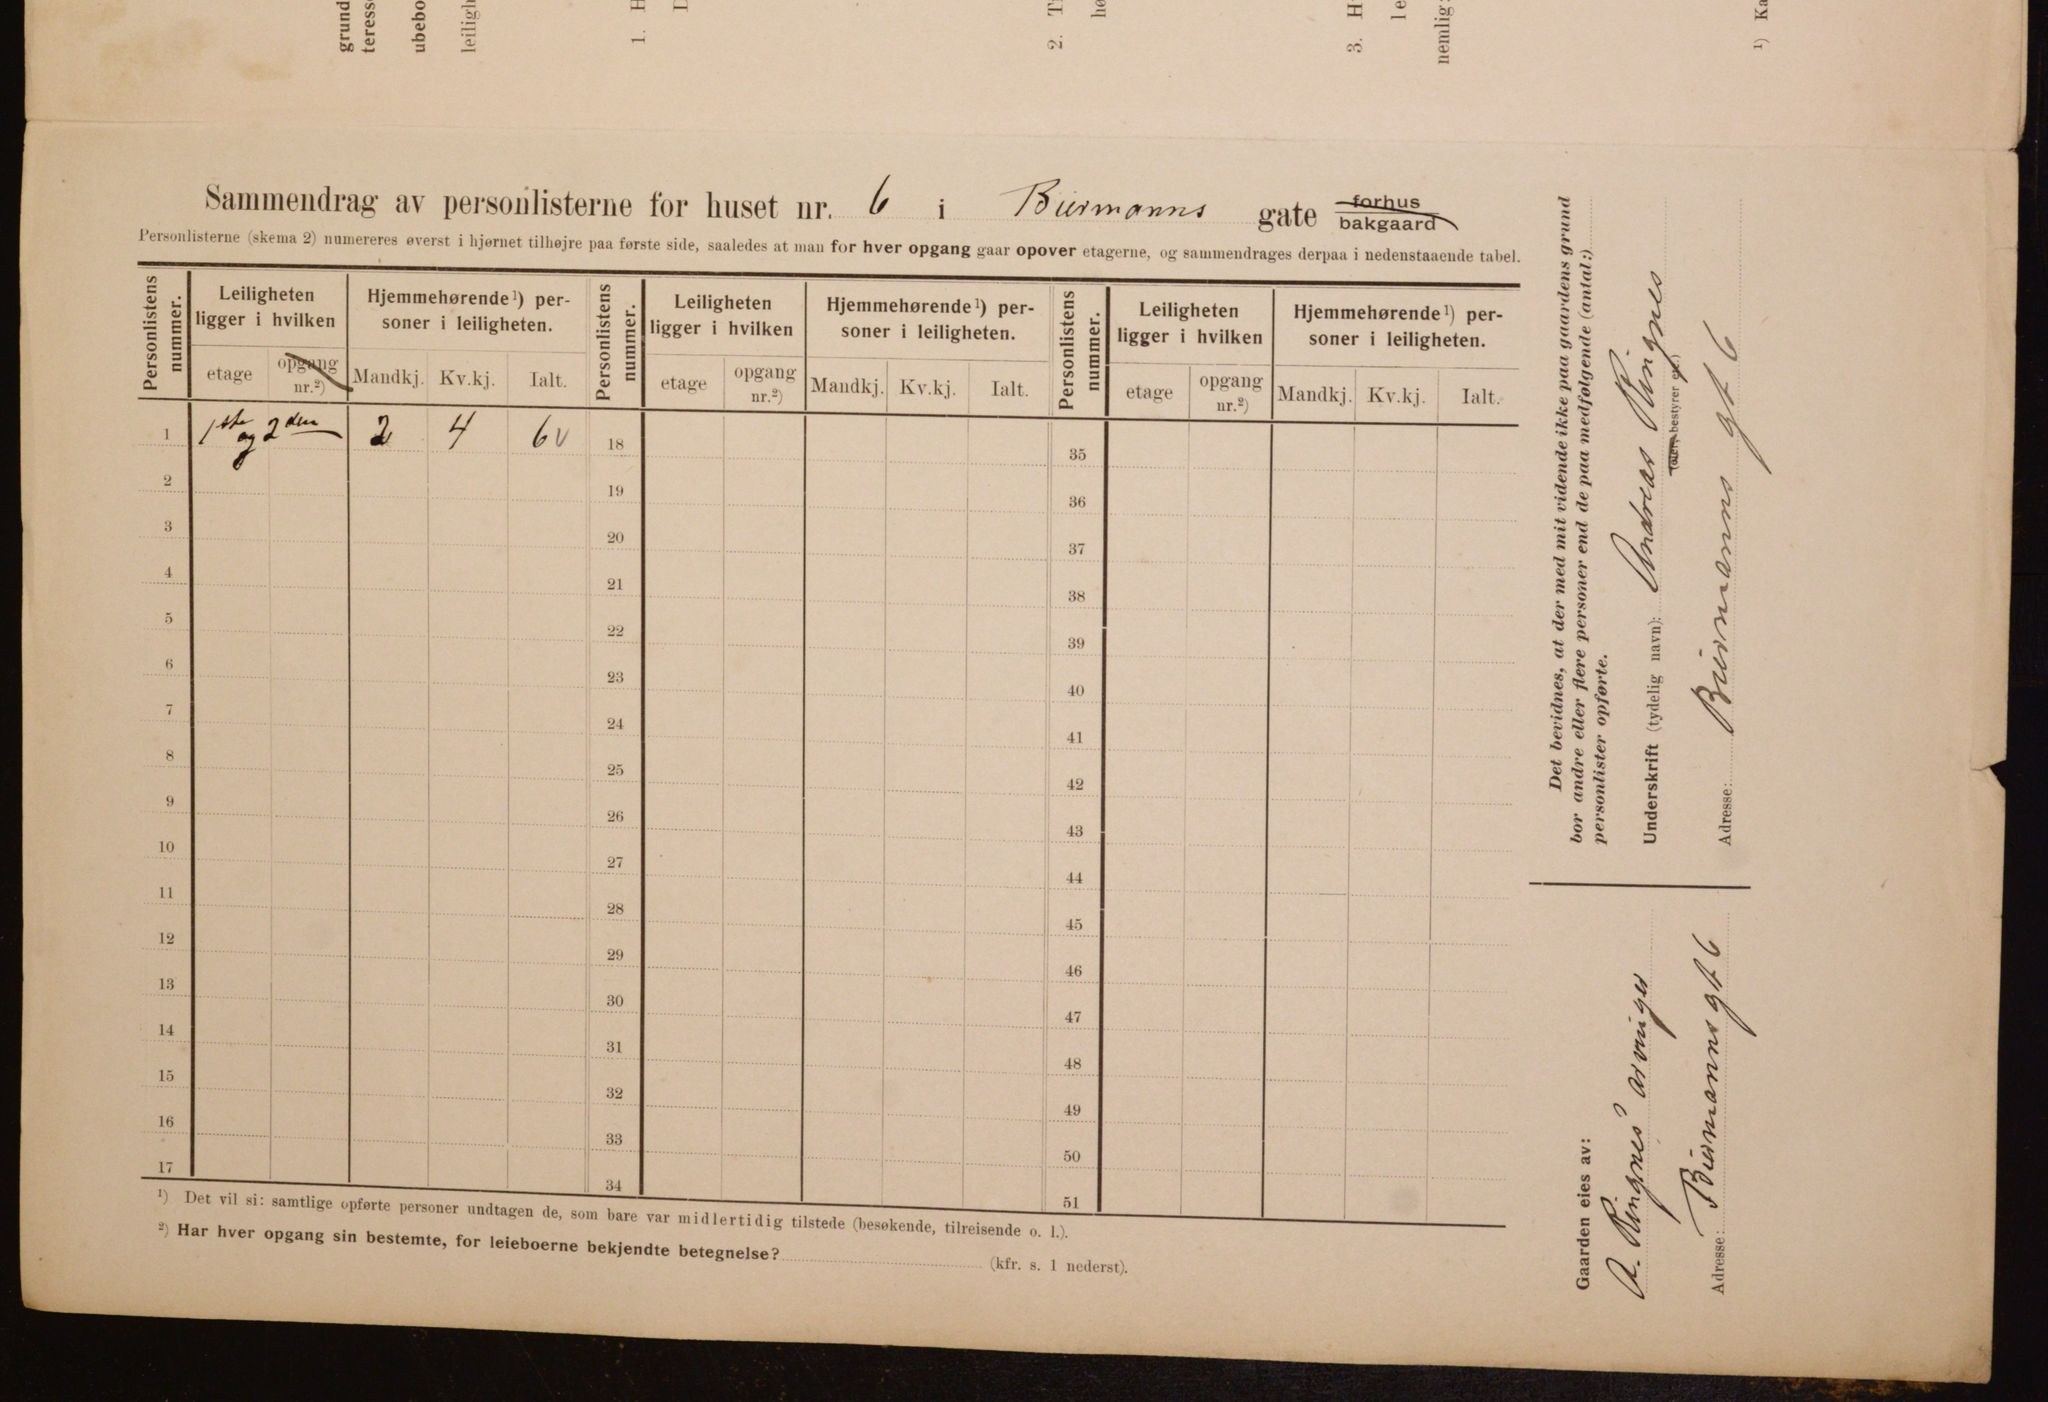 grund
teress
ubebo
leiligh
1. H
D
2. T
hø
3. H
le
nemlig:
¹) Ka
Sammendrag av personlisterne for huset nr. 6 i Biermanns gate forhus bakgaard
Personlisterne (skema 2) numereres øverst i hjørnet tilhøjre paa første side, saaledes at man for hver opgang gaar opover etagerne, og sammendrages derpaa i nedenstaaende tabel.
Personlistens nummer.
Leiligheten
ligger i hvilken
etage
opgang
nr.²)
Hjemmehørende¹) per-
soner i leiligheten.
Mandkj. Kv.kj. Ialt.
Personlistens nummer.
Leiligheten
ligger i hvilken
etage
opgang
nr.²)
Hjemmehørende¹) per-
soner i leiligheten.
Mandkj. Kv.kj. Ialt.
Personlistens nummer.
Leiligheten
ligger i hvilken
etage
opgang
nr.²)
Hjemmehørende¹) per-
soner i leiligheten.
Mandkj. Kv.kj. Ialt.
1 1ste og 2den 2 4 6 v 18 35
2 19 36
3 20 37
4 21 38
5 22 39
6 23 40
7 24 41
8 25 42
9 26 43
10 27 44
11 28 45
12 29 46
13 30 47
14 31 48
15 32 49
16 33 50
17 34 51
¹) Det vil si: samtlige opførte personer undtagen de, som bare var midlertidig tilstede (besøkende, tilreisende o. l.).
²) Har hver opgang sin bestemte, for leieboerne bekjendte betegnelse? (kfr. s. 1 nederst).
Det bevidnes, at der med mit vidende ikke paa gaardens grund
bor andre eller flere personer end de paa medfølgende (antal:)
personlister opførte.
Underskrift (tydelig navn): Andreas Ringnes
(eier, bestyrer etc.)
Adresse: Biermanns gt 6
Gaarden eies av:
A. Ringnes' arvinger
Adresse: Biermanns gt 6